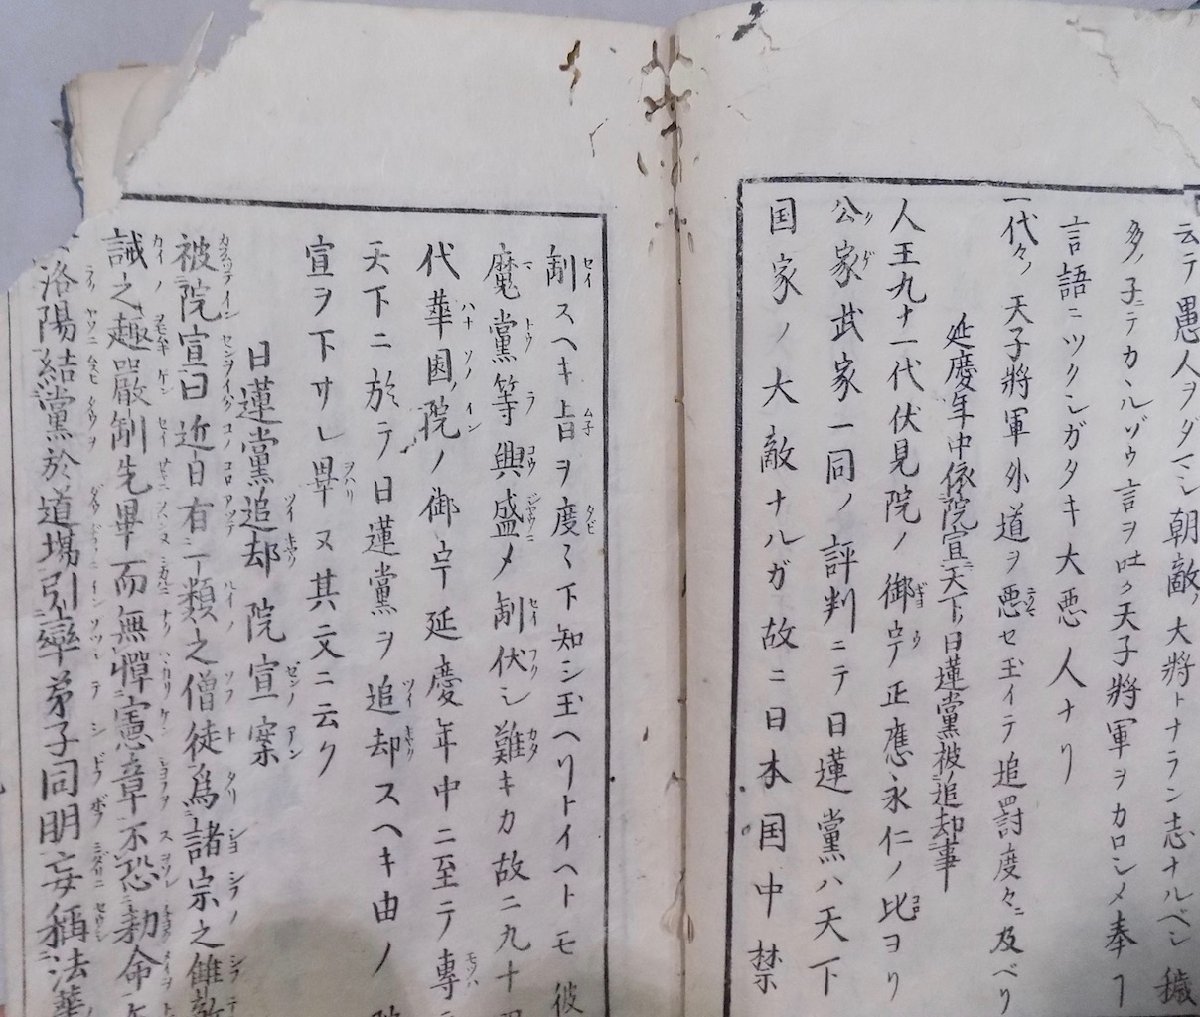 云テ愚人ヲタマシ朝敵ノ大將トナラン志ナルベシ穢
多ノ子ニテカヽルゾウ言ヲ吐ク天子將軍ヲカロシメ奉ル
言語ニツクシガタキ大悪人ナリ
一代々ノ天子將軍外道ヲ悪セ玉イテ追罰度々ニ及ベリ
延慶年中依院宣天下ノ日蓮黨被追却事
人王九十一代伏見院ノ御宇正應永仁ノ比ヨリ
公家武家一同ノ評判ニテ日蓮黨ハ天下
国家ノ大敵ナルガ故ニ日本国中禁
制スヘキ旨ヲ度々下知シ玉ヘリトイヘトモ彼
魔黨等興盛メ制伏シ難キカ故ニ九十四
代華園ノ院ノ御宇延慶年中ニ至テ專ニ
天下ニ於テ日蓮黨ヲ追却スヘキ由ノ
宣ヲ下サレ畢ヌ其文ニ云ク
日蓮黨追却院宣案
被院宣曰近日有一類之僧徒爲諸宗之讎敵
誡之趣嚴制先畢而無憚憲章不恐勅命
洛陽結黨於道場引率弟子同朋妄稱法華